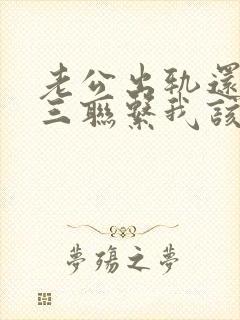 老公出轨還
三聯繫我該
夢殤之夢